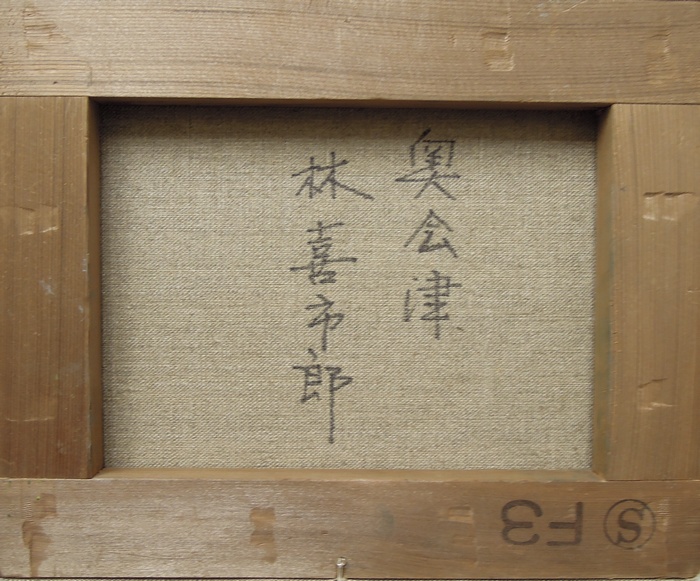 奥会津
林喜市郎
Ⓢ F3